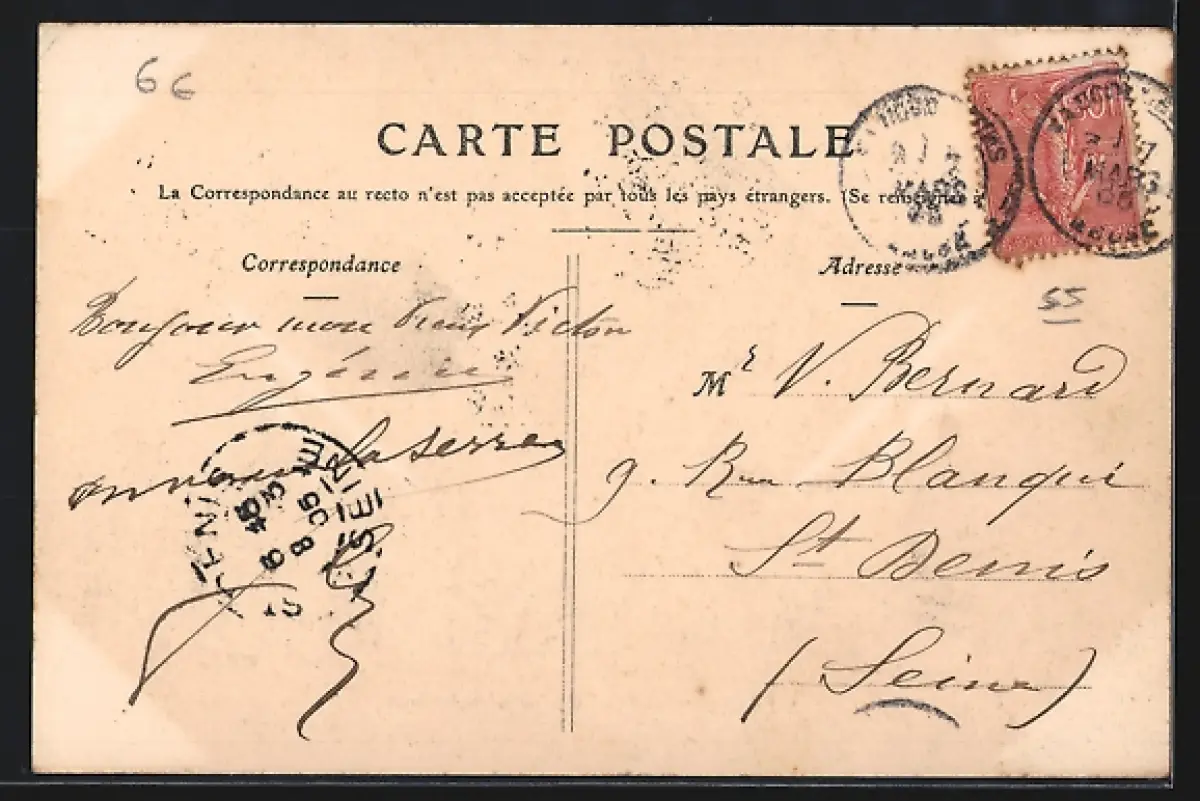 66
CARTE POSTALE
La Correspondance au recto n'est pas acceptée par tous les pays étrangers. (Se renseigner à
Correspondance
Adresse
55
Bonjour mon vieux Victor
Eugénie
Laserre
Mr V. Bernard
9. Rue Blanqui
St Denis
(Seine)
MARS
05
AUDE
MARS
05
AUDE
ST DENIS
SEINE
6 45
8 3
05